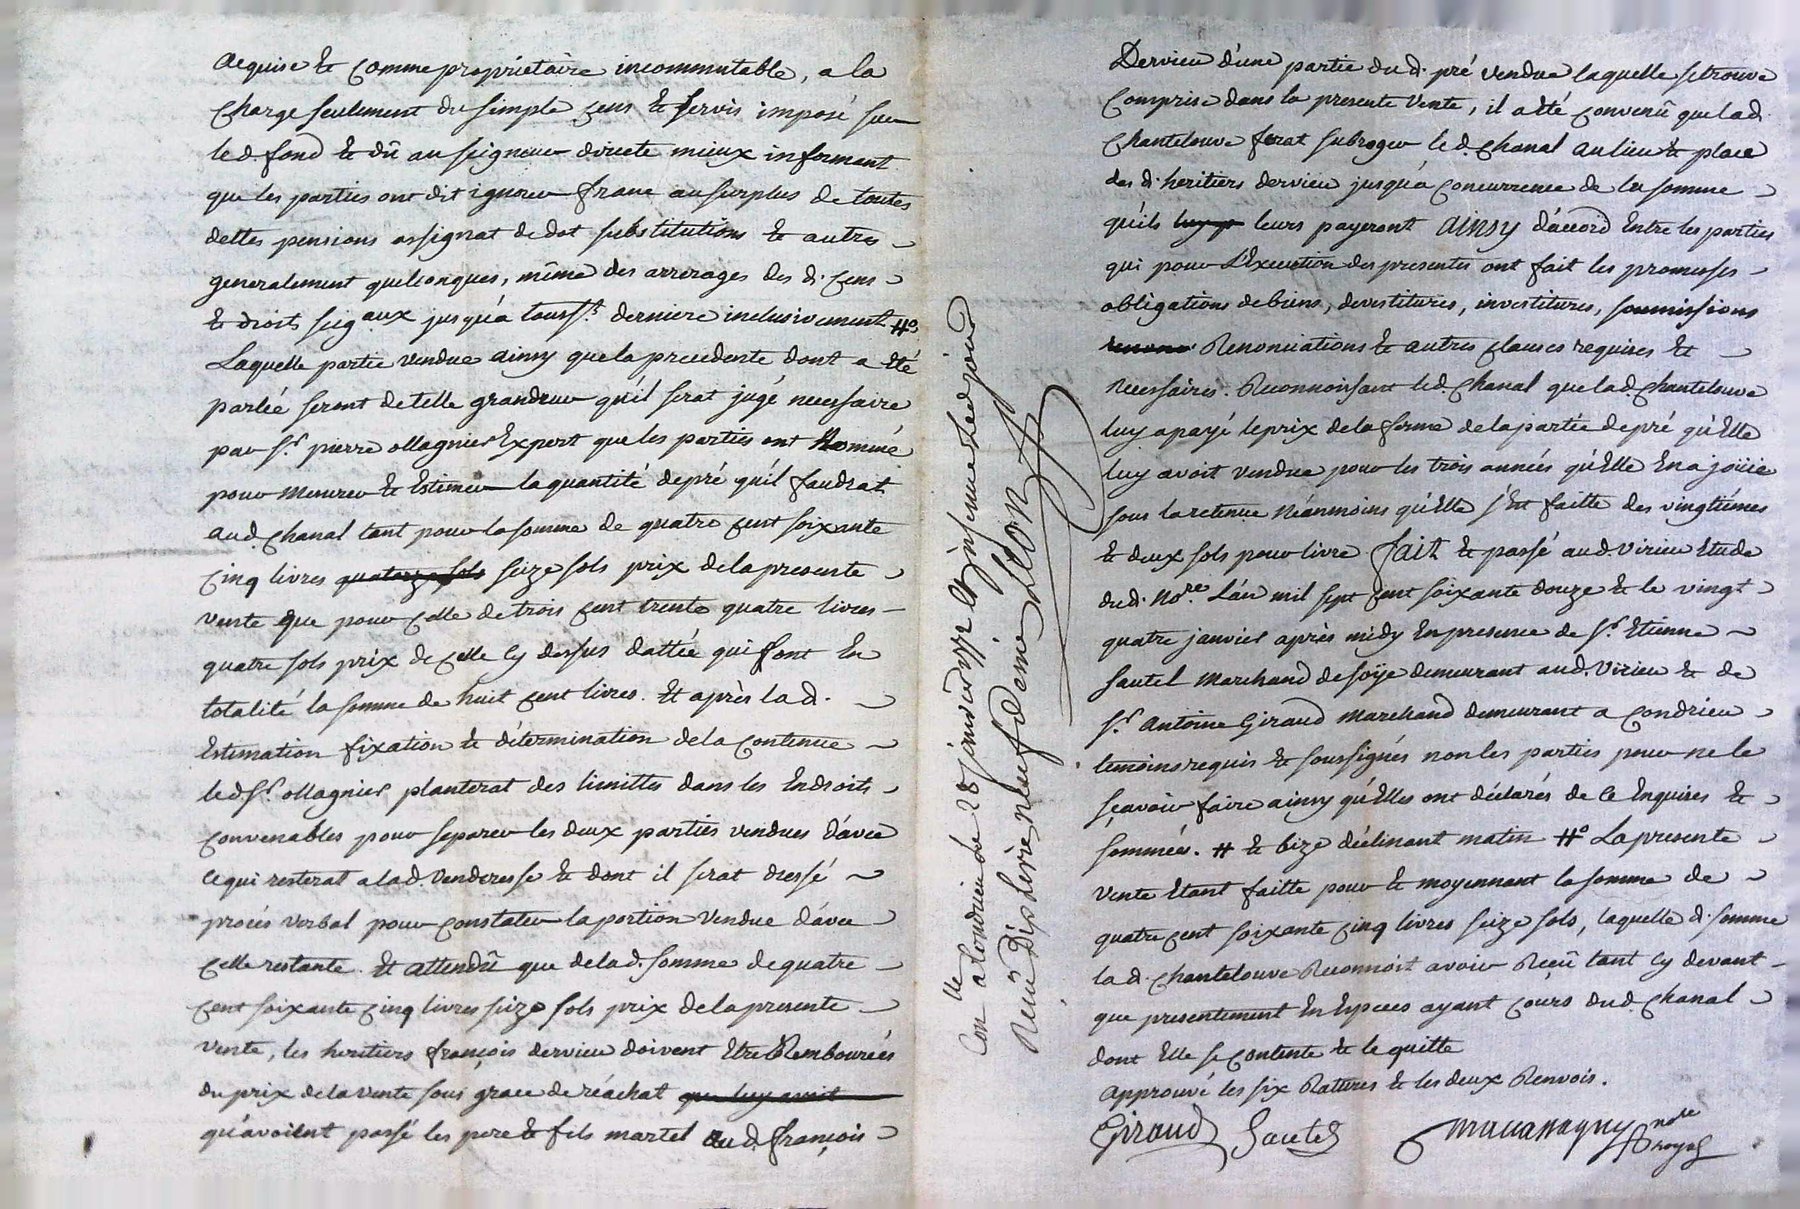 acquise & comme propriétaire incommutable, a la
charge seulement du simple cens & servis imposé sur
led. fond & dû au seigneur directe mieux informant
que les parties ont dit ignorer franc au surplus de toutes
dettes pensions assignat de dot substitutions & autres
generalement quelconques, même des arrerages des d. cens
& droits seig.aux jusqu'a touss.ts derniere inclusivement #o
Laquelle partie vendue ainsy que la precedente dont a été
parléé seront de telle grandeur qu'il serat jugé necessaire
par s.r pierre ollagnier Expert que les parties ont Nommé
pour mesurer & Estimer la quantité de pré qu'il faudrat
aud. Chanal tant pour la somme de quatre cent soixante
cinq livres quatorze sols seize sols prix de la presente
vente que pour celle de trois cent trente quatre livres
quatre sols prix de celle cy dessus dattée qui font En
totalité la somme de huit cent livres. Et après la d.
Estimation fixation & détermination de la contenue
led. s.r ollagnier planterat des limittes dans les Endroits
convenables pour separer les deux parties vendues d'avec
ce qui resterat a la d. venderesse & dont il serat dressé
procés verbal pour constater la portion vendue d'avec
celle restante. Et attendû que de la d. somme de quatre
cent soixante cinq livres seize sols prix de la presente
vente, les heritiers françois dervieu doivent Etre Rembourcés
du prix de la vente sous grace de réachat que luy avoit
qu'avoient passé les pere & fils martel aud. françois
Con.lle a Condrieu le 28 janvier 1772 & insinué led. jour
Reçu Dix livre neuf s. Demie
Dervieu d'une partie du d. pré vendue laquelle se trouve
comprise dans la presente vente, il a été convenû que lad.
Chantelouve ferat subroger le d. Chanal au lieu & place
des d. heritiers dervieu jusqu'a concurrence de la somme
qu'ils luy p leurs payeront ainsy d'accord Entre les parties
qui pour L'Execution des presentes ont fait les promesses
obligations de biens, devestitures, investitures, soumissions
renonc Renonciations & autres clauses requises &
necessaires. Reconnoissant led. Chanal que lad. Chantelouve
luy a payé le prix de la ferme de la partie de pré qu'Elle
luy avoit vendue pour les trois années qu'Elle En a joüie
sous la retenue néanmoins qu'Elle s'Est faitte des vingtiémes
& deux sols pour livre fait & passé aud. Virieu Etude
du d. No.re L'an mil sept cent soixante douze & le vingt
quatre janvier après midy En presence de s.r Etienne
Sautel marchand de soÿe demeurant aud. Virieu & de
s.r Antoine Giraud marchand demeurant a Condrieu
temoins requis & soussignés non les parties pour ne le
sçavoir faire ainsy qu'Elles ont déclarés de ce Enquises &
sommées. # & bize déclinant matin #o La presente
vente Etant faitte pour & moyennant la somme de
quatre cent soixante cinq livres seize sols, laquelle d. somme
la d. Chantelouve Reconnoit avoir Reçû tant cy devant
que presentement En Especes ayant cours dud. Chanal
dont Elle se contente & le quitte
Approuvé les six Ratures & les deux Renvois.
Giraud Sautel no.re royal